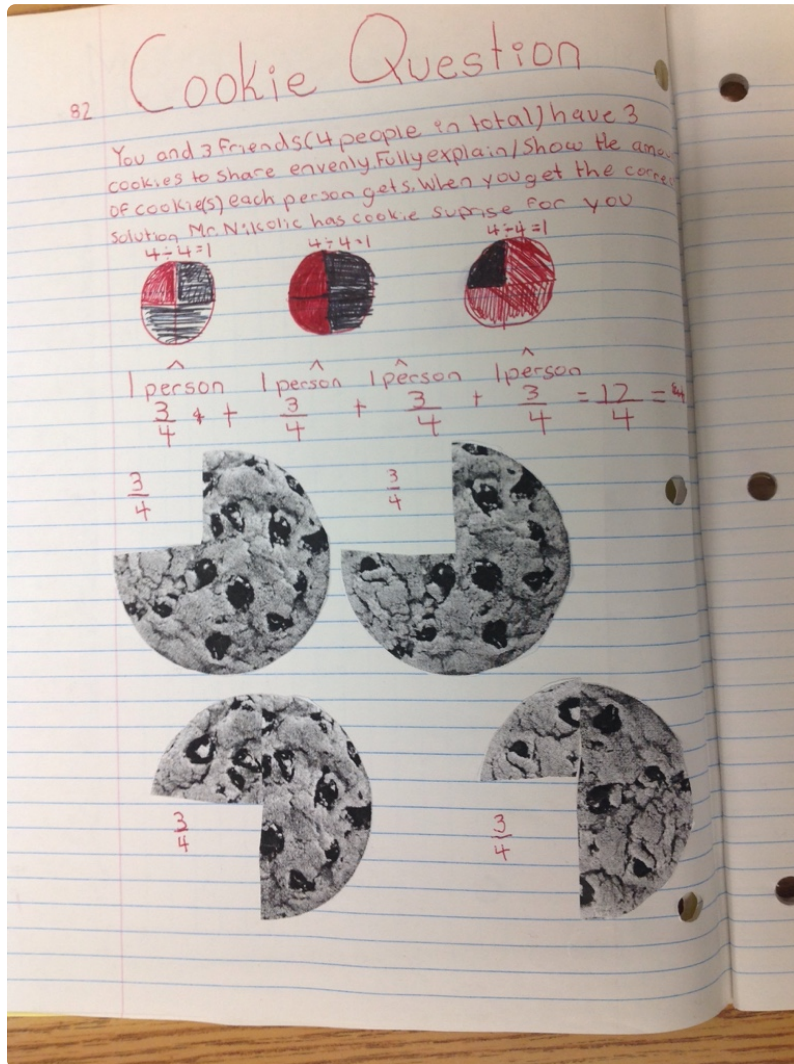 Cookie Question
82
You and 3 friends (4 people in total) have 3
cookies to share envenly. Fully explain/Show the
of cookie(s) each person gets. When you get the
solution Mr. Nikolic has cookie suprise for you
4÷4=1 4÷4=1 4÷4=1
1 person 1 person 1 person 1 person
3/4 + 3/4 + 3/4 + 3/4 = 12/4 =
3/4 3/4
3/4 3/4